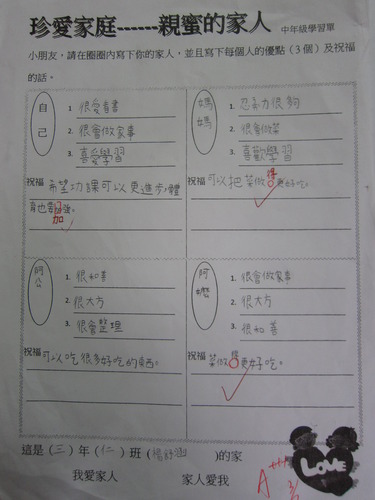 珍愛家庭------親蜜的家人 中年級學習單
小朋友，請在圈圈內寫下你的家人，並且寫下每個人的優點（3 個）及祝福
的話。
自己
1. 很愛看書
2. 很會做家事
3. 喜愛學習
祝福 希望功課可以更進步，體
育也要加強。
加
媽媽
1. 忍耐力很夠
2. 很會做菜
3. 喜歡學習
祝福 可以把菜做得更好吃。
阿公
1. 很和善
2. 很大方
3. 很會整理
祝福 可以吃很多好吃的東西。
阿嬤
1. 很會做家事
2. 很大方
3. 很和善
祝福 菜做得更好吃。
這是（三）年（仁）班（楊舒涵 )的家
我愛家人 家人愛我
A+++
LOVE